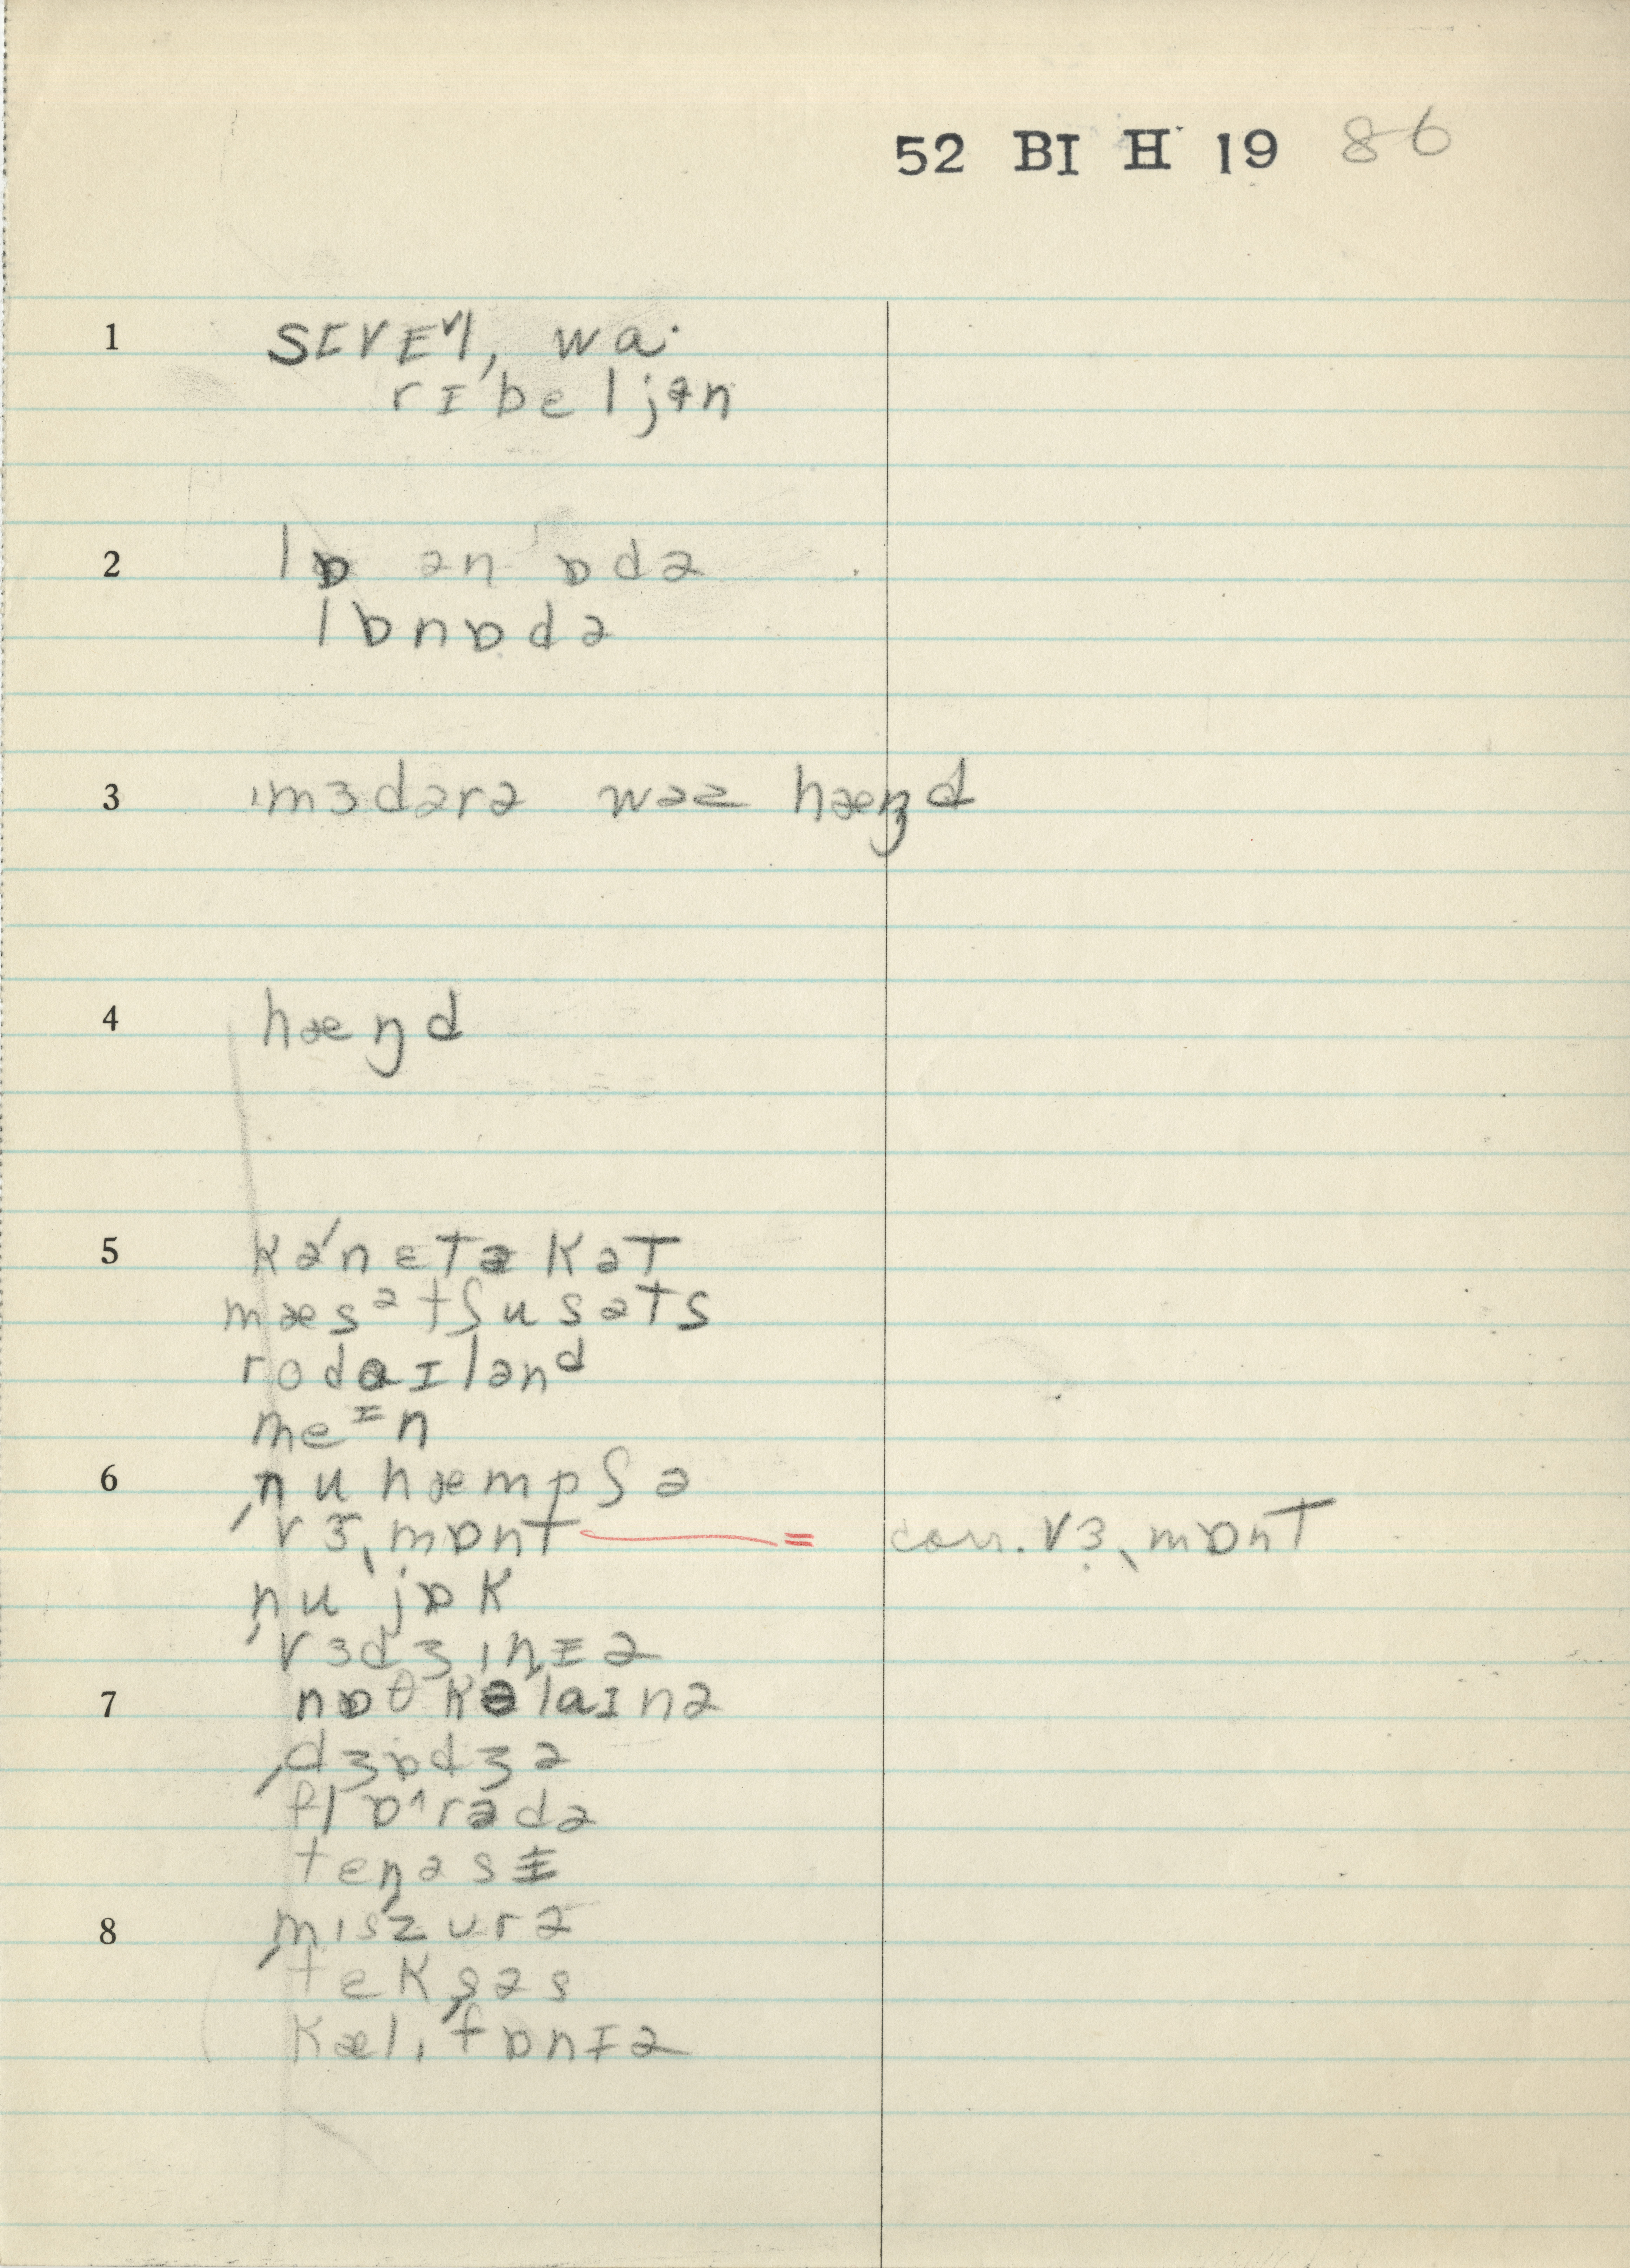 52 BI H 19 86
1 sɪvɛᵛl, wa·
rɪˈbeljən
2 lɒ ən ˈɒdə
lɒnɒdə
3 ɪmɜdərə wəz hæŋd
4 hæŋd
5 kəˈnɛtəkət
mæsᵊtʃusəts
rodaɪlənᵈ
meᶦn
6 nuhæmpʃə
ˌvɜˎmɒnt = corr. vɜˎmɒnt
nu jɒk
ˌvɜdʒɪnɪə
7 nɒθkəlaɪnə
dʒɒdʒə
ˌflɒˈrədə
tenəsɪ
8 mɪsˌzurə
ˌteksəs
kælɪˌfɒnɪə